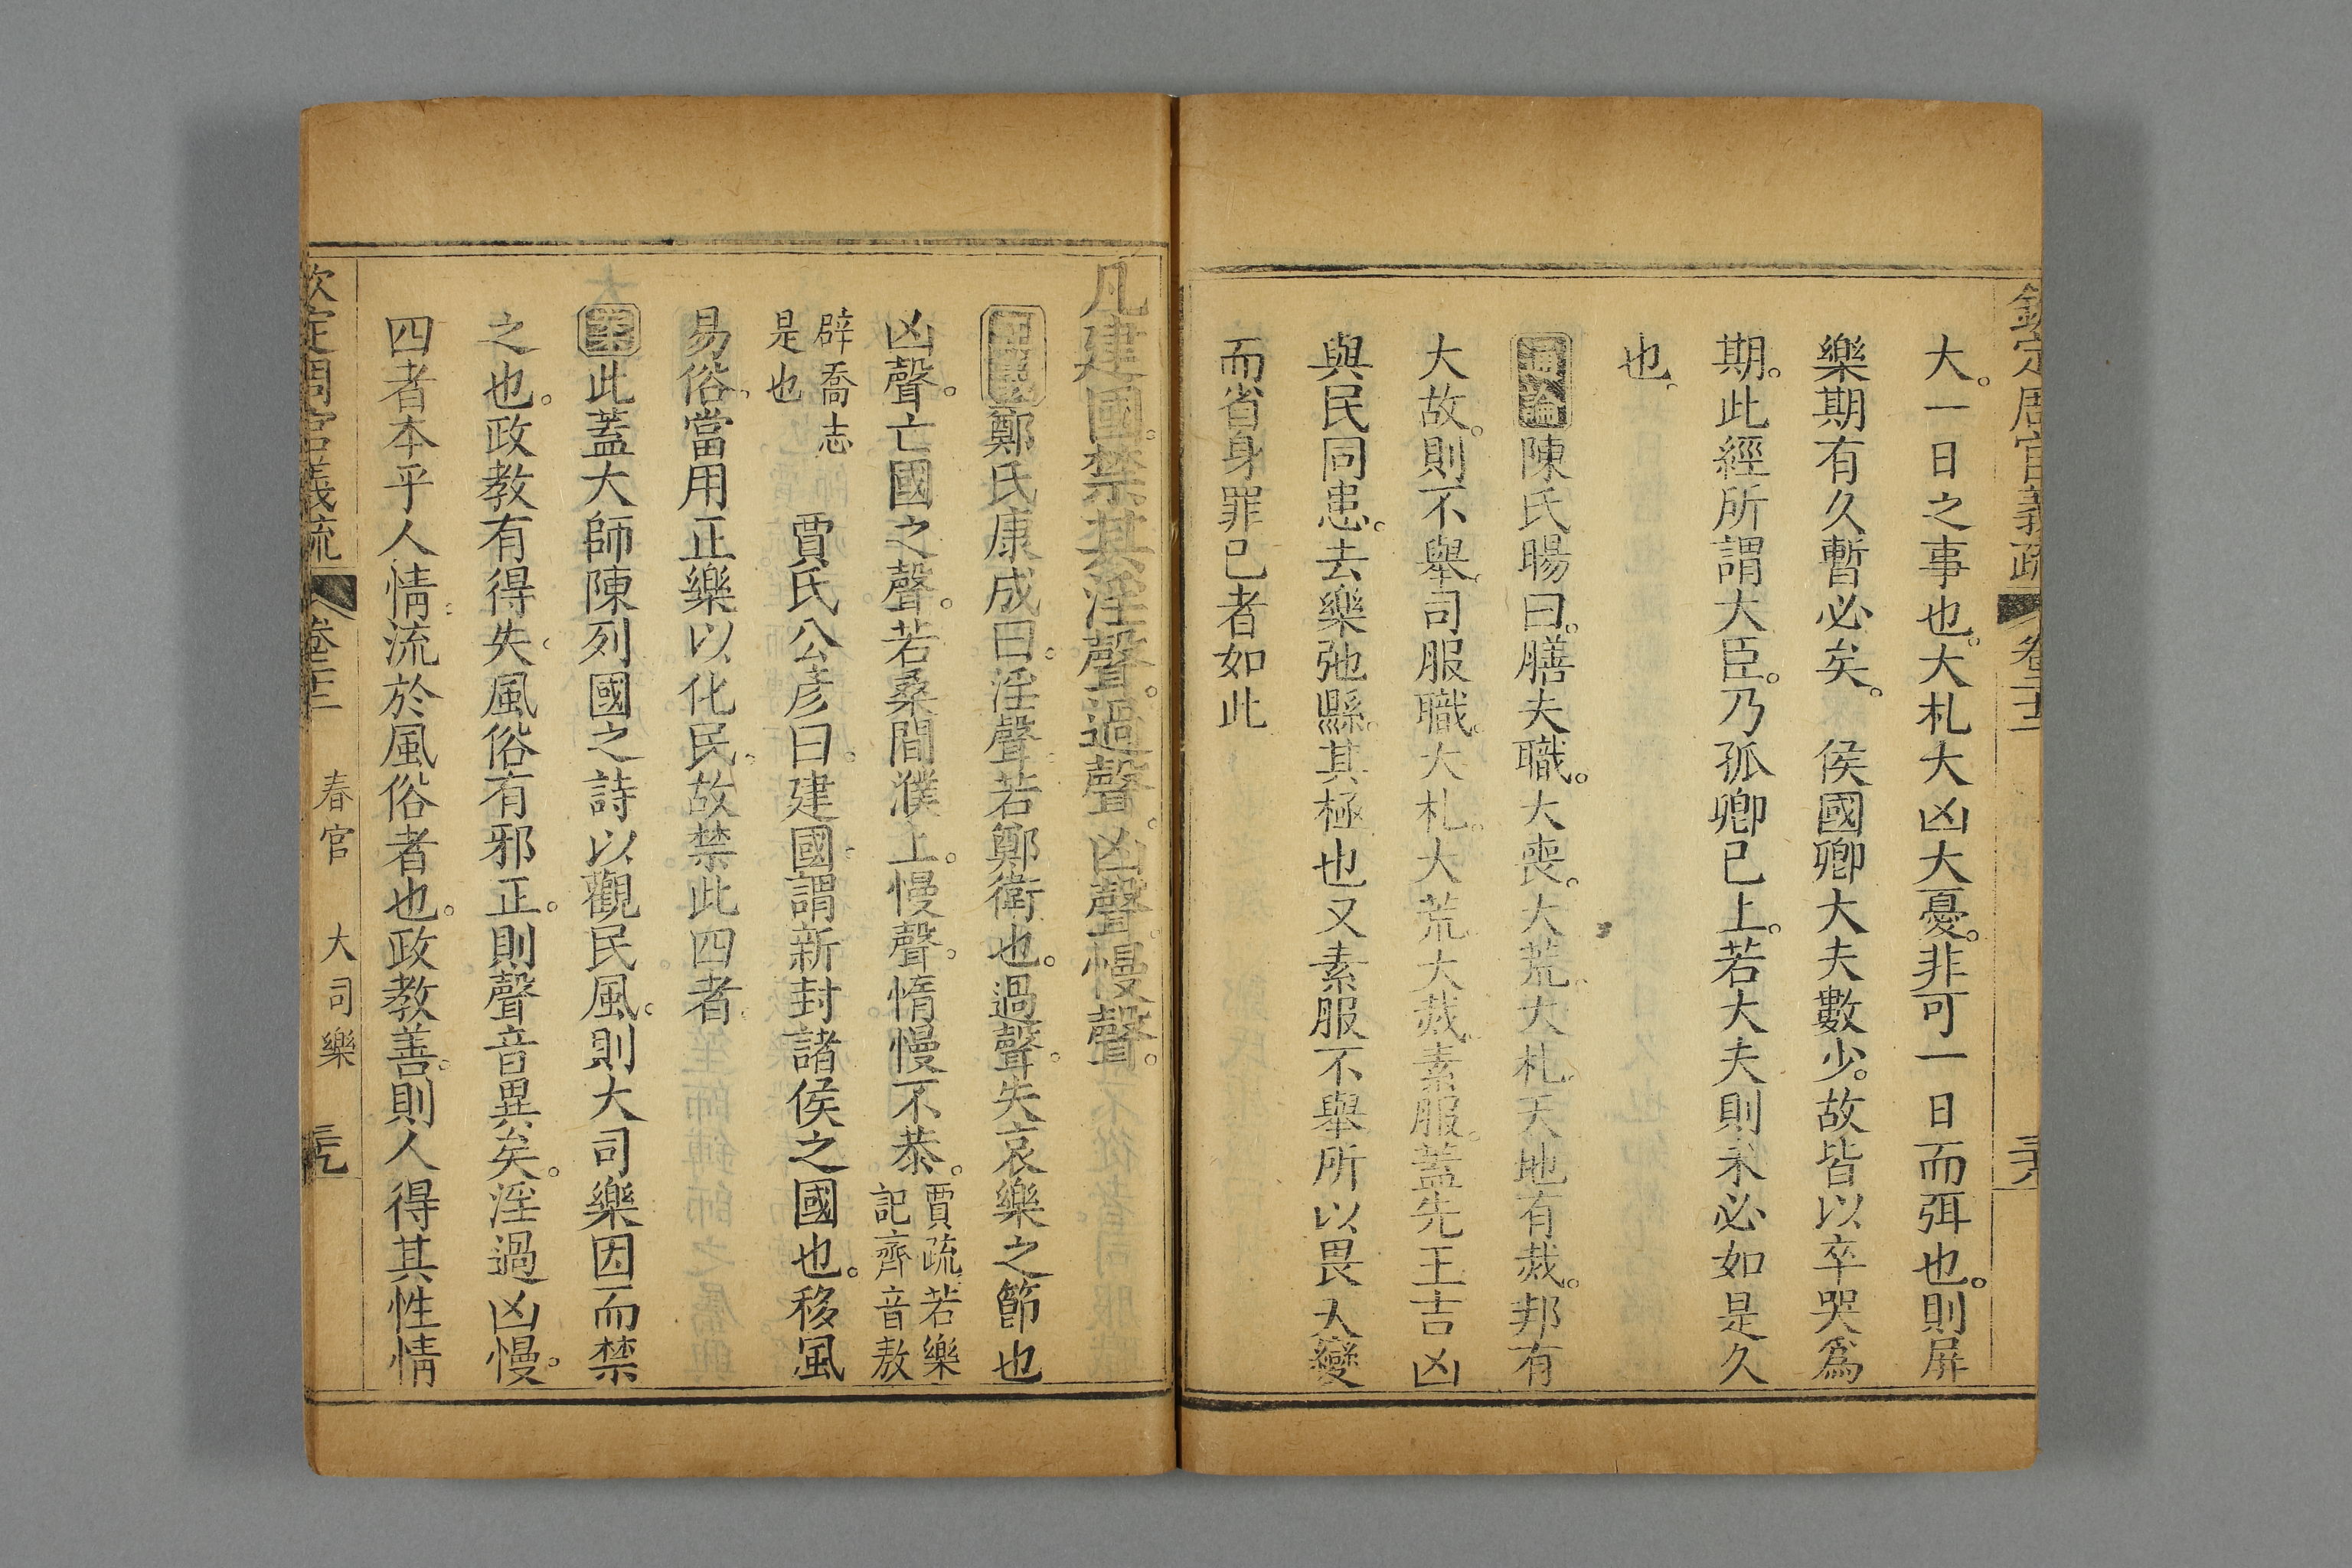 欽定周官義疏 卷二十二 三六
大。一日之事也。大札大凶大憂。非可一日而弭也。則屏
樂期有久暫必矣。 侯國卿大夫數少。故皆以卒哭爲
期。此經所謂大臣。乃孤卿已上。若大夫則未必如是久
也。
通論陳氏暘曰。膳夫職。大喪。大荒。大札。天地有烖。邦有
大故。則不舉。司服職。大札。大荒。大烖。素服。蓋先王吉凶
與民同患。去樂弛縣。其極也又素服不舉。所以畏天變
而省身罪已者如此
凡建國。禁其淫聲。過聲。凶聲。慢聲。
正義鄭氏康成曰。淫聲若鄭衛也。過聲。失哀樂之節也
凶聲。亡國之聲。若桑間濮上。慢聲。惰慢不恭。賈疏。若樂
記齊音敖
辟喬志
是也 賈氏公彥曰。建國。謂新封諸侯之國也。移風
易俗。當用正樂以化民。故禁此四者。
案此蓋大師陳列國之詩以觀民風。則大司樂因而禁
之也。政教有得失。風俗有邪正。則聲音異矣。淫過凶慢。
四者本乎人情。流於風俗者也。政教善。則人得其性情
欽定周官義疏 卷二十二 春官 大司樂 三七